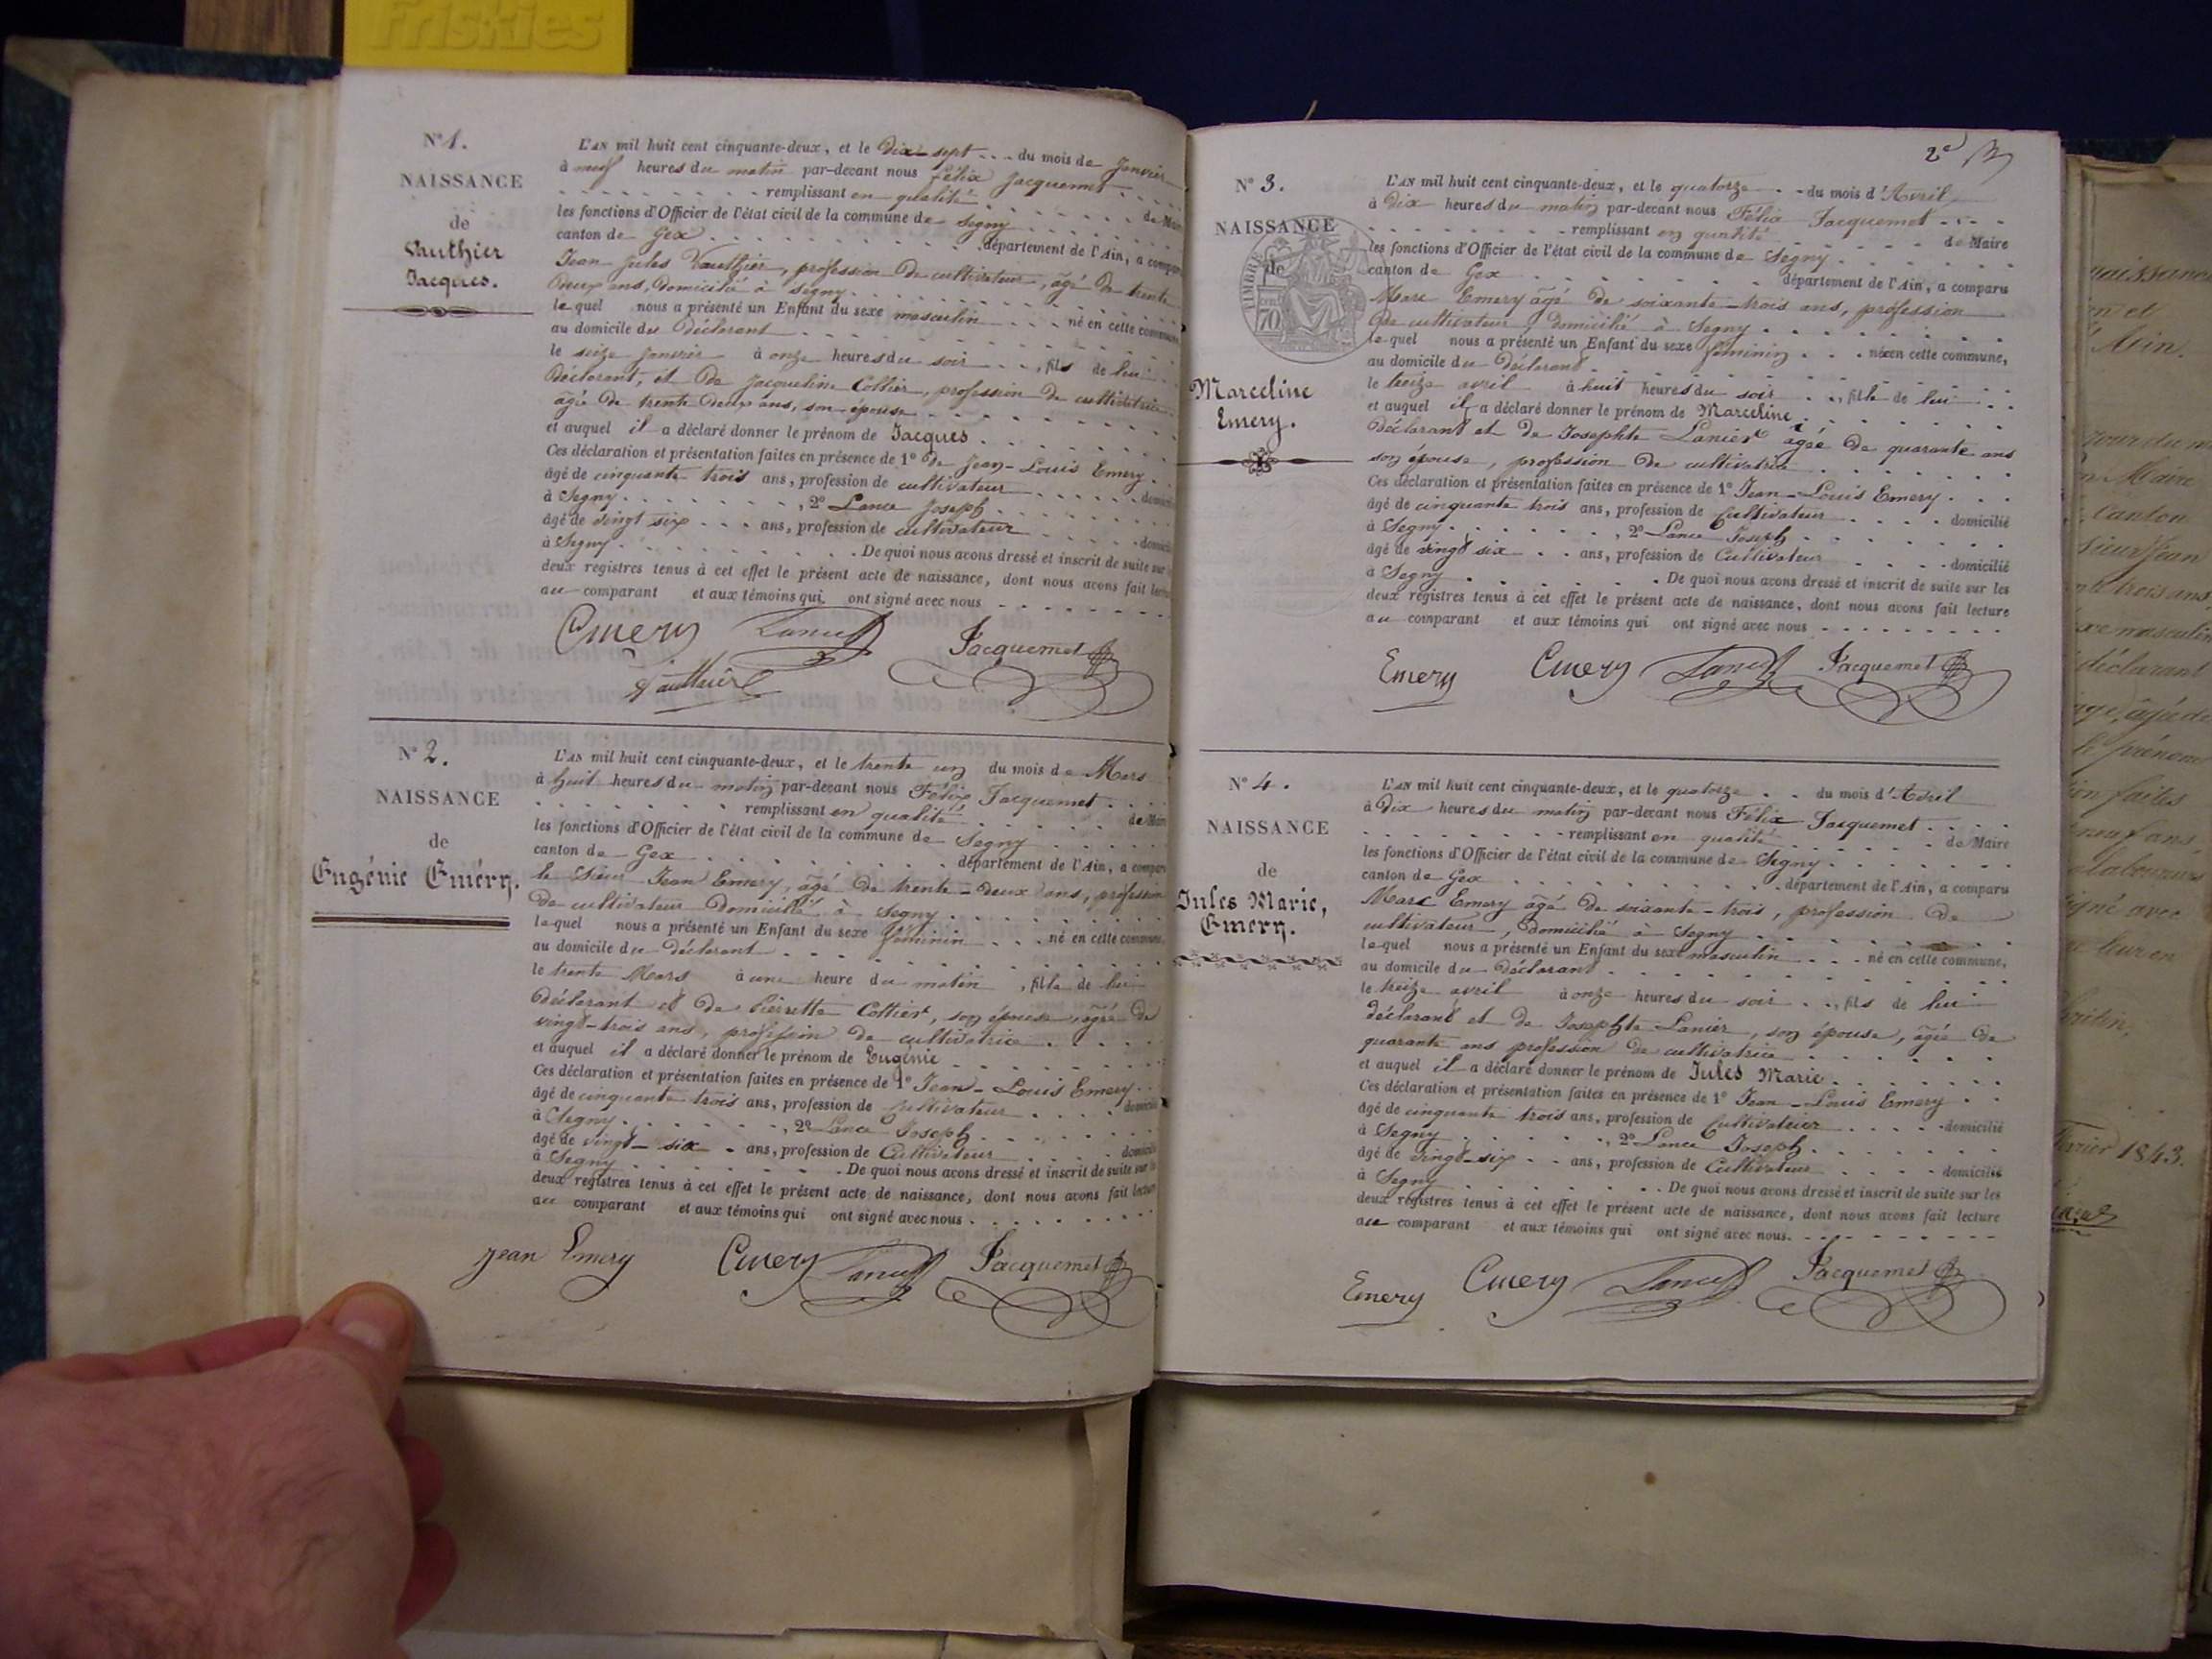 Friskies
N° 1.
NAISSANCE
de
Vauthier
Jacques.
L'AN mil huit cent cinquante-deux, et le Dix-sept . . . du mois de Janvier
à neuf heures du matin par-devant nous Félix Jacquemet
remplissant en qualité de Maire
les fonctions d'Officier de l'état civil de la commune de Segny
canton de Gex département de l'Ain, a comparu
Jean Jules Vauthier, profession de cultivateur, âgé de trente
Deux ans, domicilié à Segny
lequel nous a présenté un Enfant du sexe masculin né en cette commune
au domicile du Déclarant
le seize Janvier à onze heures du soir , fils de lui
Déclarant, et de Jacqueline Collier, profession de cultivatrice
âgée de trente Deux ans, son épouse
et auquel il a déclaré donner le prénom de Jacques
Ces déclaration et présentation faites en présence de 1° De Jean-Louis Emery
âgé de cinquante trois ans, profession de cultivateur
à Segny , 2° Lance Joseph
âgé de vingt six ans, profession de cultivateur
à Segny . De quoi nous avons dressé et inscrit de suite sur
deux registres tenus à cet effet le présent acte de naissance, dont nous avons fait
au comparant et aux témoins qui ont signé avec nous
Emery Jacquemet
Vauthier
N° 2.
NAISSANCE
de
Eugénie Emery.
L'AN mil huit cent cinquante-deux, et le trente un du mois de Mars
à huit heures du matin par-devant nous Félix Jacquemet
remplissant en qualité de Maire
les fonctions d'Officier de l'état civil de la commune de Segny
canton de Gex département de l'Ain, a comparu
le Sieur Jean Emery, âgé de trente-deux ans, profession
De cultivateur Domicilié à Segny
lequel nous a présenté un Enfant du sexe féminin né en cette commune,
au domicile du Déclarant
le trente Mars à une heure du matin , fille de lui
Déclarant et de Pierrette Collier, son épouse, âgée de
vingt-trois ans, profession de cultivatrice
et auquel il a déclaré donner le prénom de Eugénie
Ces déclaration et présentation faites en présence de 1° Jean-Louis Emery
âgé de cinquante trois ans, profession de Cultivateur
à Segny , 2° Lance Joseph
âgé de vingt-six ans, profession de Cultivateur
à Segny . De quoi nous avons dressé et inscrit de suite sur
deux registres tenus à cet effet le présent acte de naissance, dont nous avons fait lecture
au comparant et aux témoins qui ont signé avec nous
Jean Emery Emery Jacquemet
2e
N° 3.
NAISSANCE
de
TIMBRE
70
Marceline
Emery.
L'AN mil huit cent cinquante-deux, et le quatorze du mois d'Avril
à Dix heures du matin par-devant nous Félix Jacquemet
remplissant en qualité de Maire
les fonctions d'Officier de l'état civil de la commune de Segny
canton de Gex département de l'Ain, a comparu
Marc Emery âgé de soixante-trois ans, profession
De cultivateur, Domicilié à Segny
lequel nous a présenté un Enfant du sexe féminin née en cette commune,
au domicile du Déclarant
le treize avril à huit heures du soir , fille de lui
et auquel il a déclaré donner le prénom de Marceline
Déclarant et de Josephte Lanier âgée de quarante ans
son épouse, profession De cultivatrice
Ces déclaration et présentation faites en présence de 1° Jean-Louis Emery
âgé de cinquante trois ans, profession de Cultivateur domicilié
à Segny , 2° Lance Joseph
âgé de vingt six ans, profession de Cultivateur domicilié
à Segny . De quoi nous avons dressé et inscrit de suite sur les
deux registres tenus à cet effet le présent acte de naissance, dont nous avons fait lecture
au comparant et aux témoins qui ont signé avec nous
Emery Emery Jacquemet
N° 4.
NAISSANCE
de
Jules Marie,
Emery.
L'AN mil huit cent cinquante-deux, et le quatorze du mois d'Avril
à Dix heures du matin par-devant nous Félix Jacquemet
remplissant en qualité de Maire
les fonctions d'Officier de l'état civil de la commune de Segny
canton de Gex département de l'Ain, a comparu
Marc Emery âgé de soixante-trois, profession De
cultivateur, Domicilié à Segny
lequel nous a présenté un Enfant du sexe masculin né en cette commune,
au domicile du Déclarant
le treize avril à onze heures du soir , fils de lui
déclarant et de Josephte Lanier, son épouse, âgée de
quarante ans profession De cultivatrice
et auquel il a déclaré donner le prénom de Jules Marie
Ces déclaration et présentation faites en présence de 1° Jean-Louis Emery
âgé de cinquante trois ans, profession de Cultivateur domicilié
à Segny , 2° Lance Joseph
âgé de vingt-six ans, profession de Cultivateur domicilié
à Segny . De quoi nous avons dressé et inscrit de suite sur les
deux registres tenus à cet effet le présent acte de naissance, dont nous avons fait lecture
au comparant et aux témoins qui ont signé avec nous.
Emery Emery Jacquemet
Maire
Canton
trois ans
masculin
déclarant
prénom
faites
neuf ans,
laboureur
signé avec
1843.